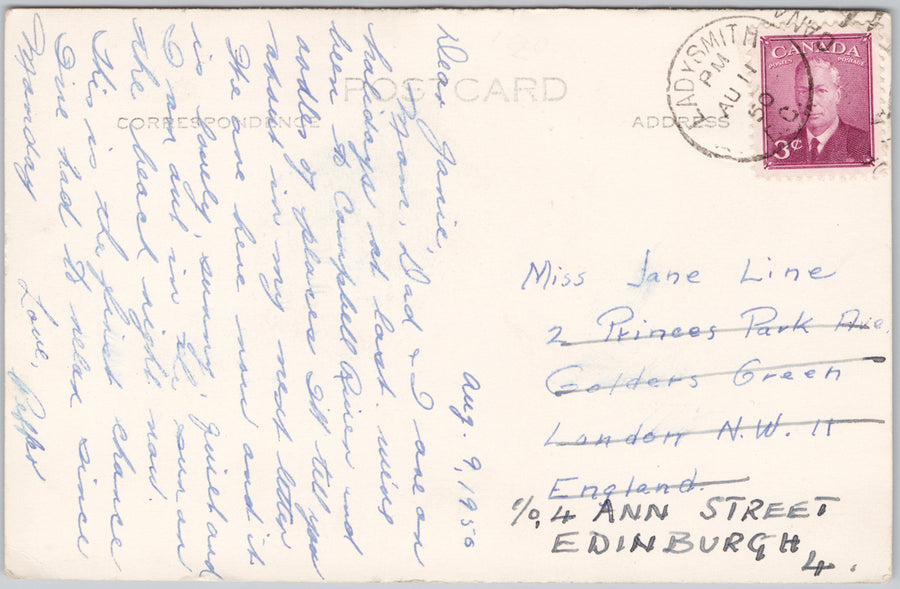 POSTCARD
CORRESPONDENCE
ADDRESS
LADYSMITH
PM
AU 11
50
B.C.
CANADA
POSTES POSTAGE
3¢
Aug. 9, 1950
Dear Janie,
Mom, Dad & I are on
holidays at last. We've
been to Campbell River and
oodles of places I'll tell you
about in my next letter.
We are here now and it
is lovely, sunny, quiet and
I am out in the sun on
the beach right now.
This is the first chance
I've had to relax since
Monday
Love,
Miss Jane Line
2 Princes Park Ave.
Golders Green
London N.W. 11
England.
c/o, 4 ANN STREET
EDINBURGH,
4.